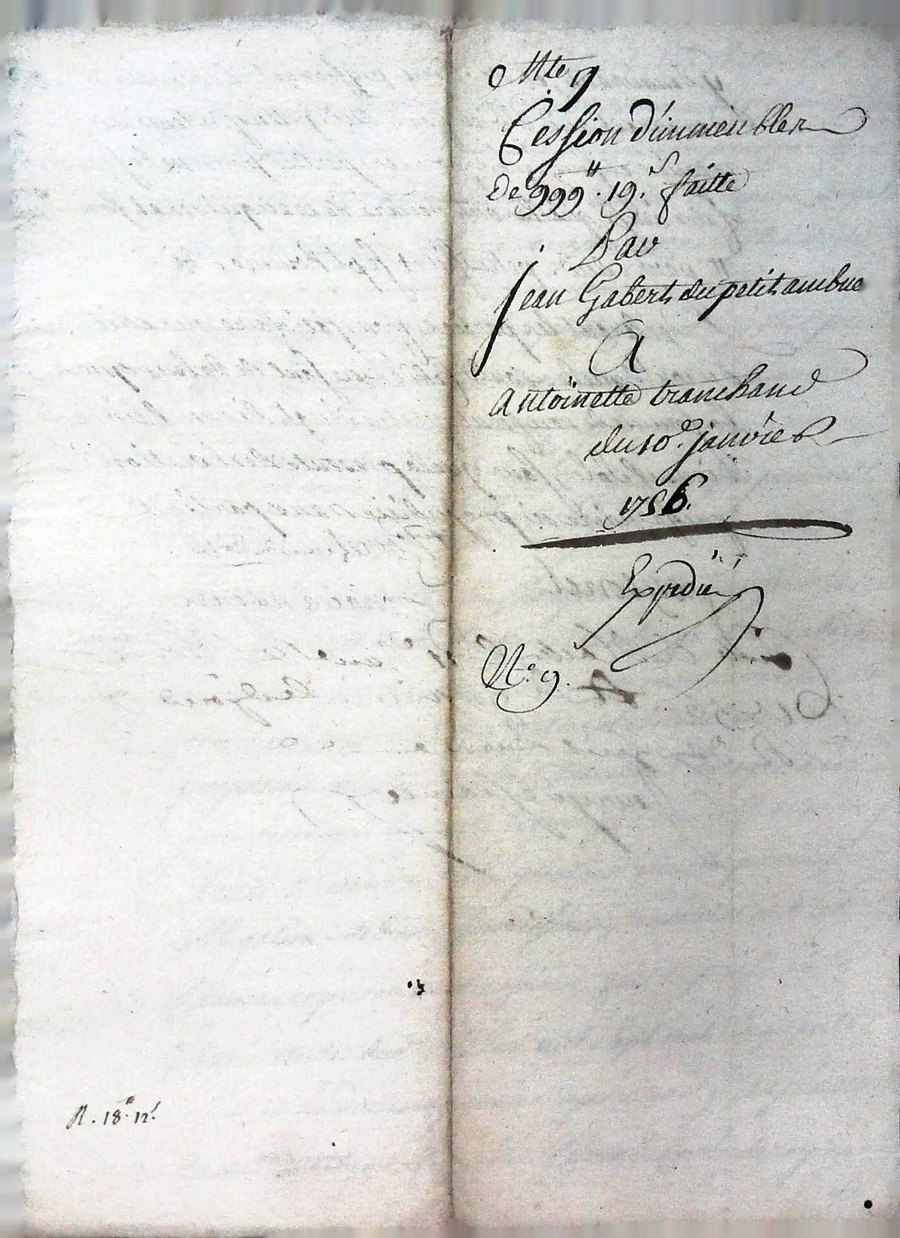 Mte 9
Cession d'immeubles
de 999tt. 19s. faitte
Par
jean Gabert du petit ambue
A
antoinette tranchand
du 10e. janvier
1756.
Expédié
No. 9.
R. 18tt. 12s.